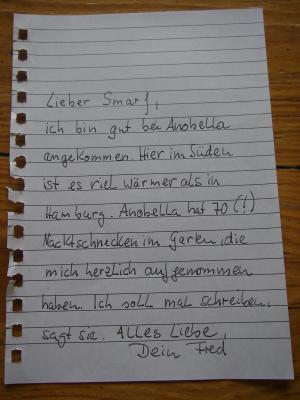 Lieber Smarf,
ich bin gut bei Anobella
angekommen. Hier im Süden
ist es viel wärmer als in
Hamburg. Anobella hat 70 (!)
Nacktschnecken im Garten, die
mich herzlich aufgenommen
haben. Ich soll mal schreiben,
sagt sie. Alles Liebe,
Dein Fred